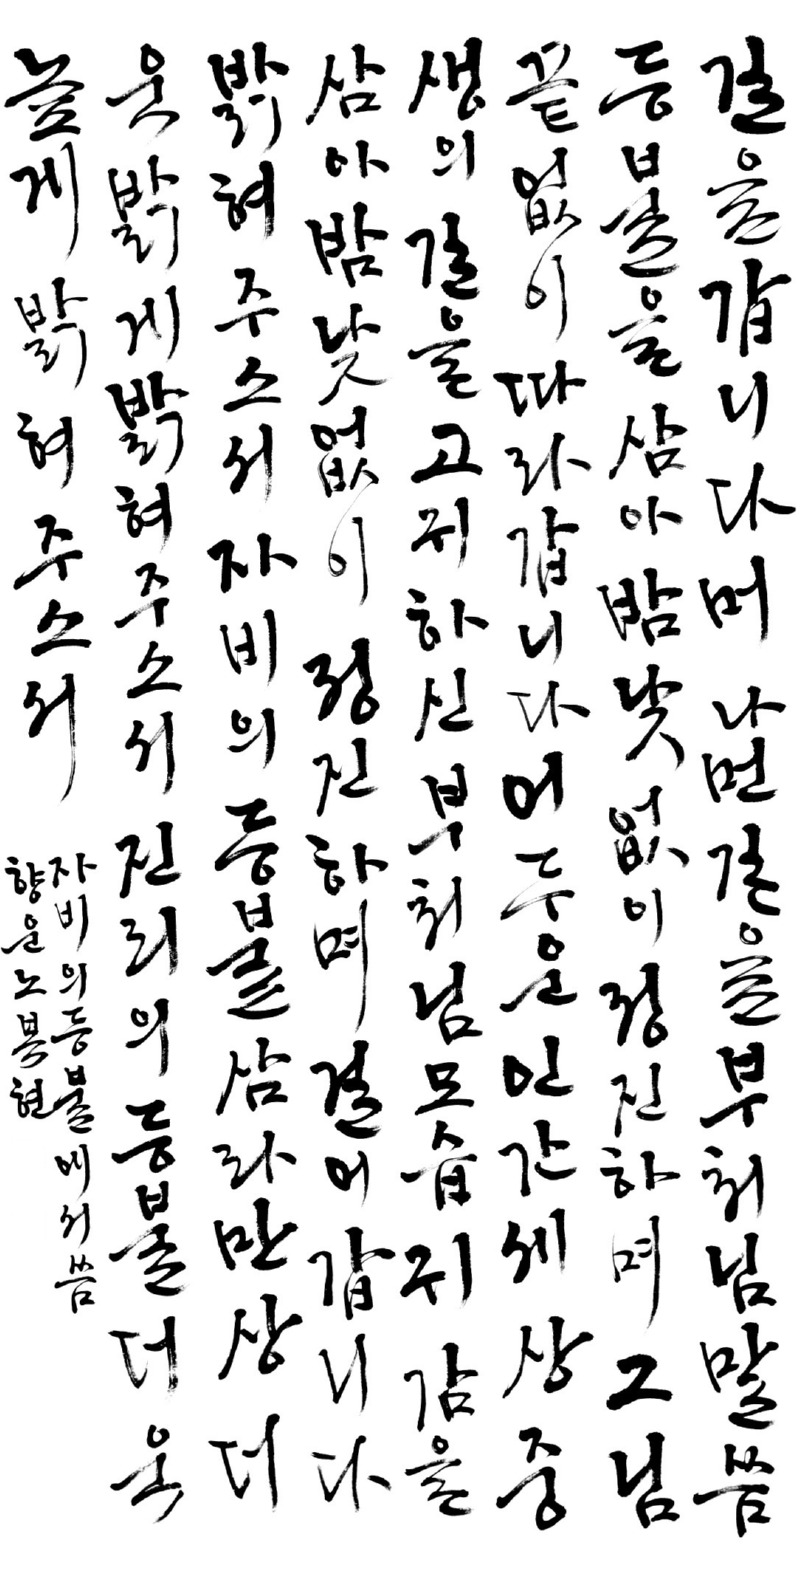 길을갑니다머나먼길을부처님말씀
등불을삼아밤낮없이정진하며그님
끝없이따라갑니다어두운인간세상중
생의길을고귀하신부처님모습귀감을
삼아밤낮없이정진하며걸어갑니다
밝혀주소서자비의등불삼라만상더
욱밝게밝혀주소서진리의등불더욱
높게밝혀주소서
자비의등불에서씀
향운노복현